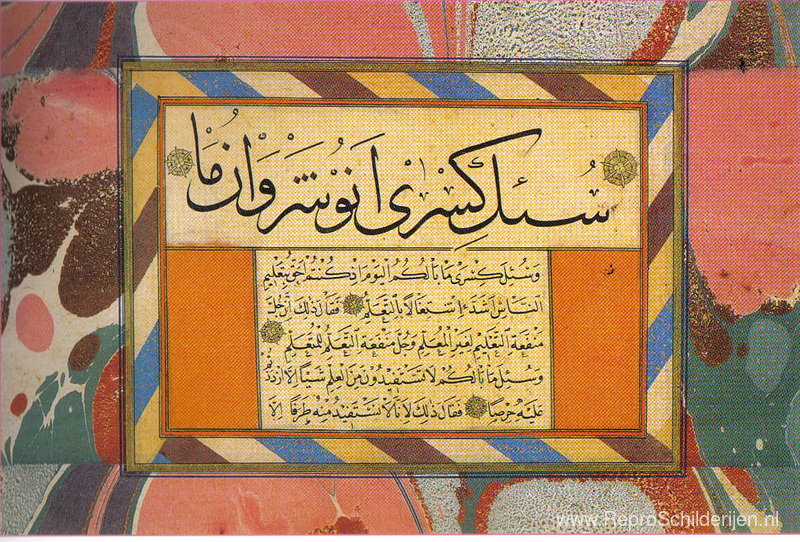 سُئِلَ كِسْرَى اَنُوشَرْوَانْ مَا
وَسُئِلَ كِسْرَى مَا بَالُكُمُ الْيَوْمَ اِذْ كُنْتُمْ اَحَقَّ بِتَعْلِيمِ
النَّاسِ اَشَدَّ اِسْتِعَالًا بِالتَّعَلُّمِ فَقَالَ ذٰلِكَ اَنَّ جُلَّ
مَنْفَعَةِ التَّعْلِيمِ لِغَيْرِ الْمُعَلِّمِ وَجُلَّ مَنْفَعَةِ التَّعَلُّمِ لِلْمُتَعَلِّمِ
وَسُئِلَ مَا بَالُكُمْ لَا تَسْتَفِيدُونَ مِنَ الْعِلْمِ شَيْئًا اِلَّا ازْدَدْتُمْ
عَلَيْهِ حِرْصًا فَقَالَ ذٰلِكَ لِاَنَّا لَا نَسْتَفِيدُ مِنْهُ طَرَفًا اِلَّا
www.ReproSchilderijen.nl